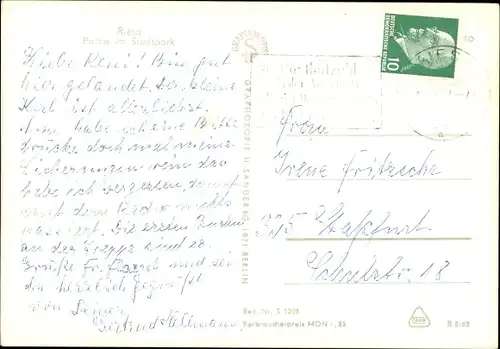 Riesa
Partie im Stadtpark
Liebe Reni! Bin gut
hier gelandet. Der kleine
Kerl ist allerliebst.
Nun habe ich eine Bitte
drücke doch mal meine
Sicherungen rein das
habe ich vergessen, damit
mit dem Radio nichts
passiert. Die ersten
an der Treppe sind es
Grüße Fr. und sei
du herzlich gegrüßt
von Deiner
Gertrud Hellmann
GRAPHOKOPIE H. SANDER KG 1071 BERLIN
DEUTSCHE DEMOKRATISCHE REPUBLIK
10
Frau
Irene Fritzsche
325 Staßfurt
Schulstr. 18
Best.-Nr. S 1205
Verbraucherpreis MDN -,25
B 6/65